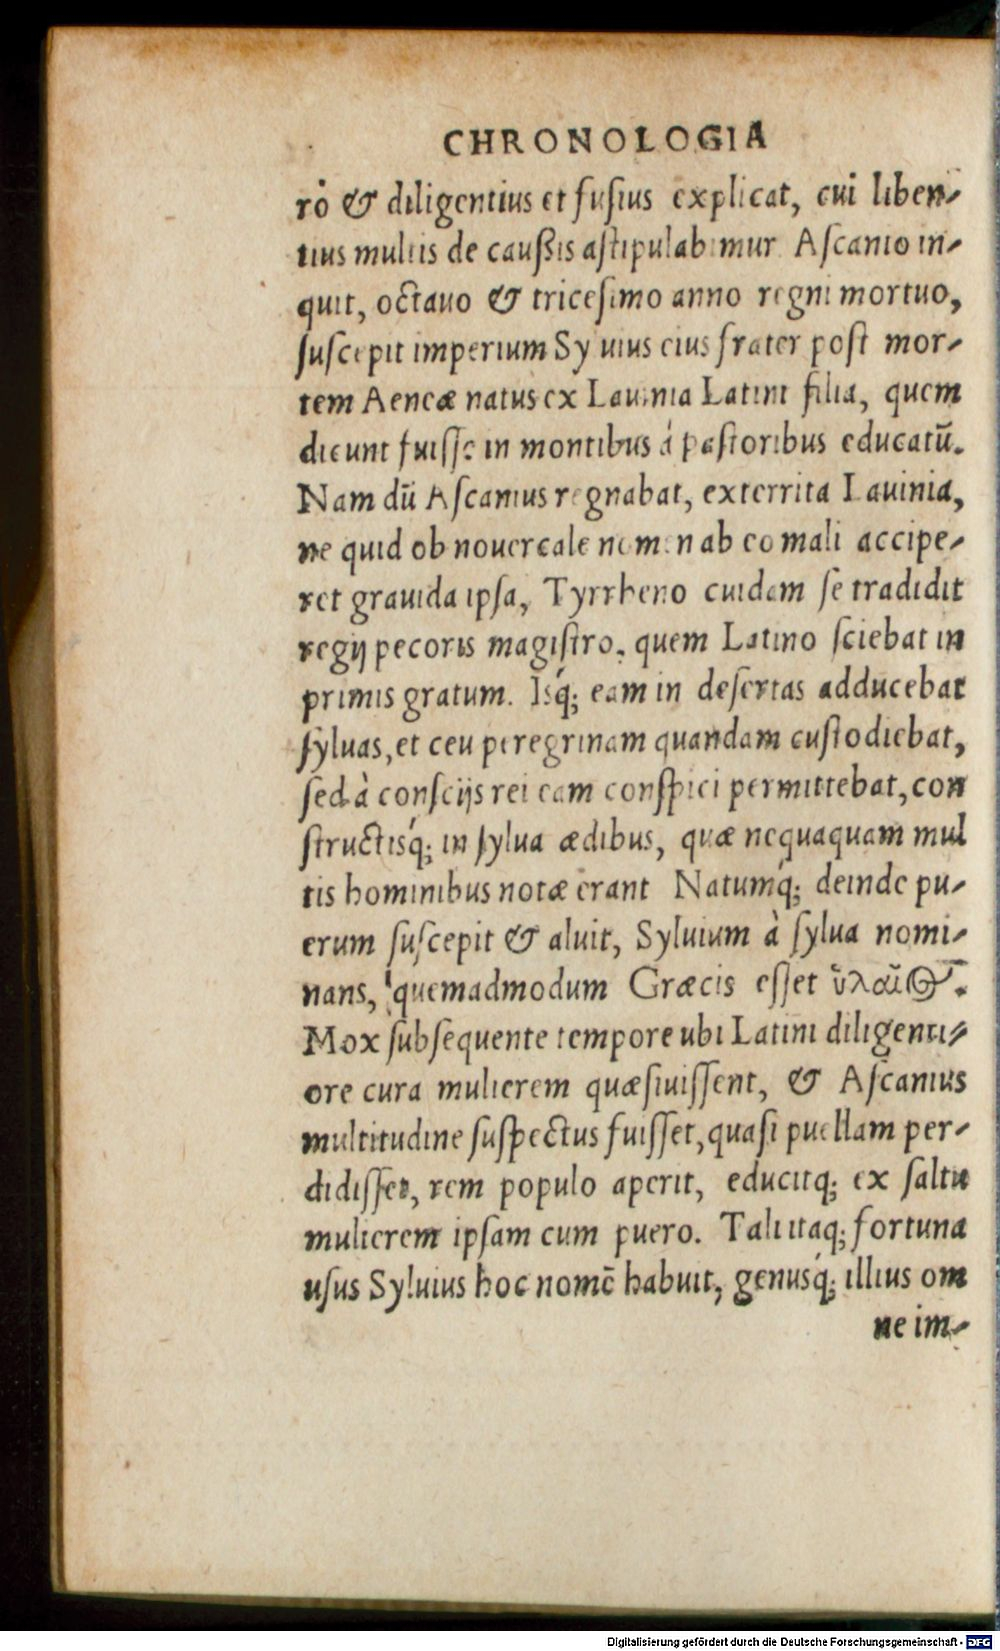 CHRONOLOGIA
rò & diligentius et fusius explicat, cui liben-
tius multis de caußis astipulabimur Ascanio in-
quit, octauo & tricesimo anno regni mortuo,
suscepit imperium Syluius eius frater post mor-
tem Aeneæ natus ex Lauinia Latini filia, quem
dicunt fuisse in montibus à pastoribus educatū.
Nam dū Ascanius regnabat, exterrita Lauinia,
ne quid ob nouercale nomen ab eo mali accipe-
ret grauida ipsa, Tyrrheno cuidam se tradidit
regij pecoris magistro, quem Latino sciebat in
primis gratum. Isq́; eam in desertas adducebat
syluas, et ceu peregrinam quandam custodiebat,
sed à conscijs rei eam conspici permittebat, con
structisq́; in sylua ædibus, quæ nequaquam mul
tis hominibus notæ erant Natumq́; deinde pu-
erum suscepit & aluit, Syluium à sylua nomi-
nans, quemadmodum Græcis esset ὑλαῖος.
Mox subsequente tempore ubi Latini diligenti-
ore cura mulierem quæsiuissent, & Ascanius
multitudine suspectus fuisset, quasi puellam per-
didisset, rem populo aperit, educitq; ex saltu
mulierem ipsam cum puero. Tali itaq; fortuna
usus Syluius hoc nomē habuit, genusq́; illius om
ne im-
Digitalisierung gefördert durch die Deutsche Forschungsgemeinschaft - DFG